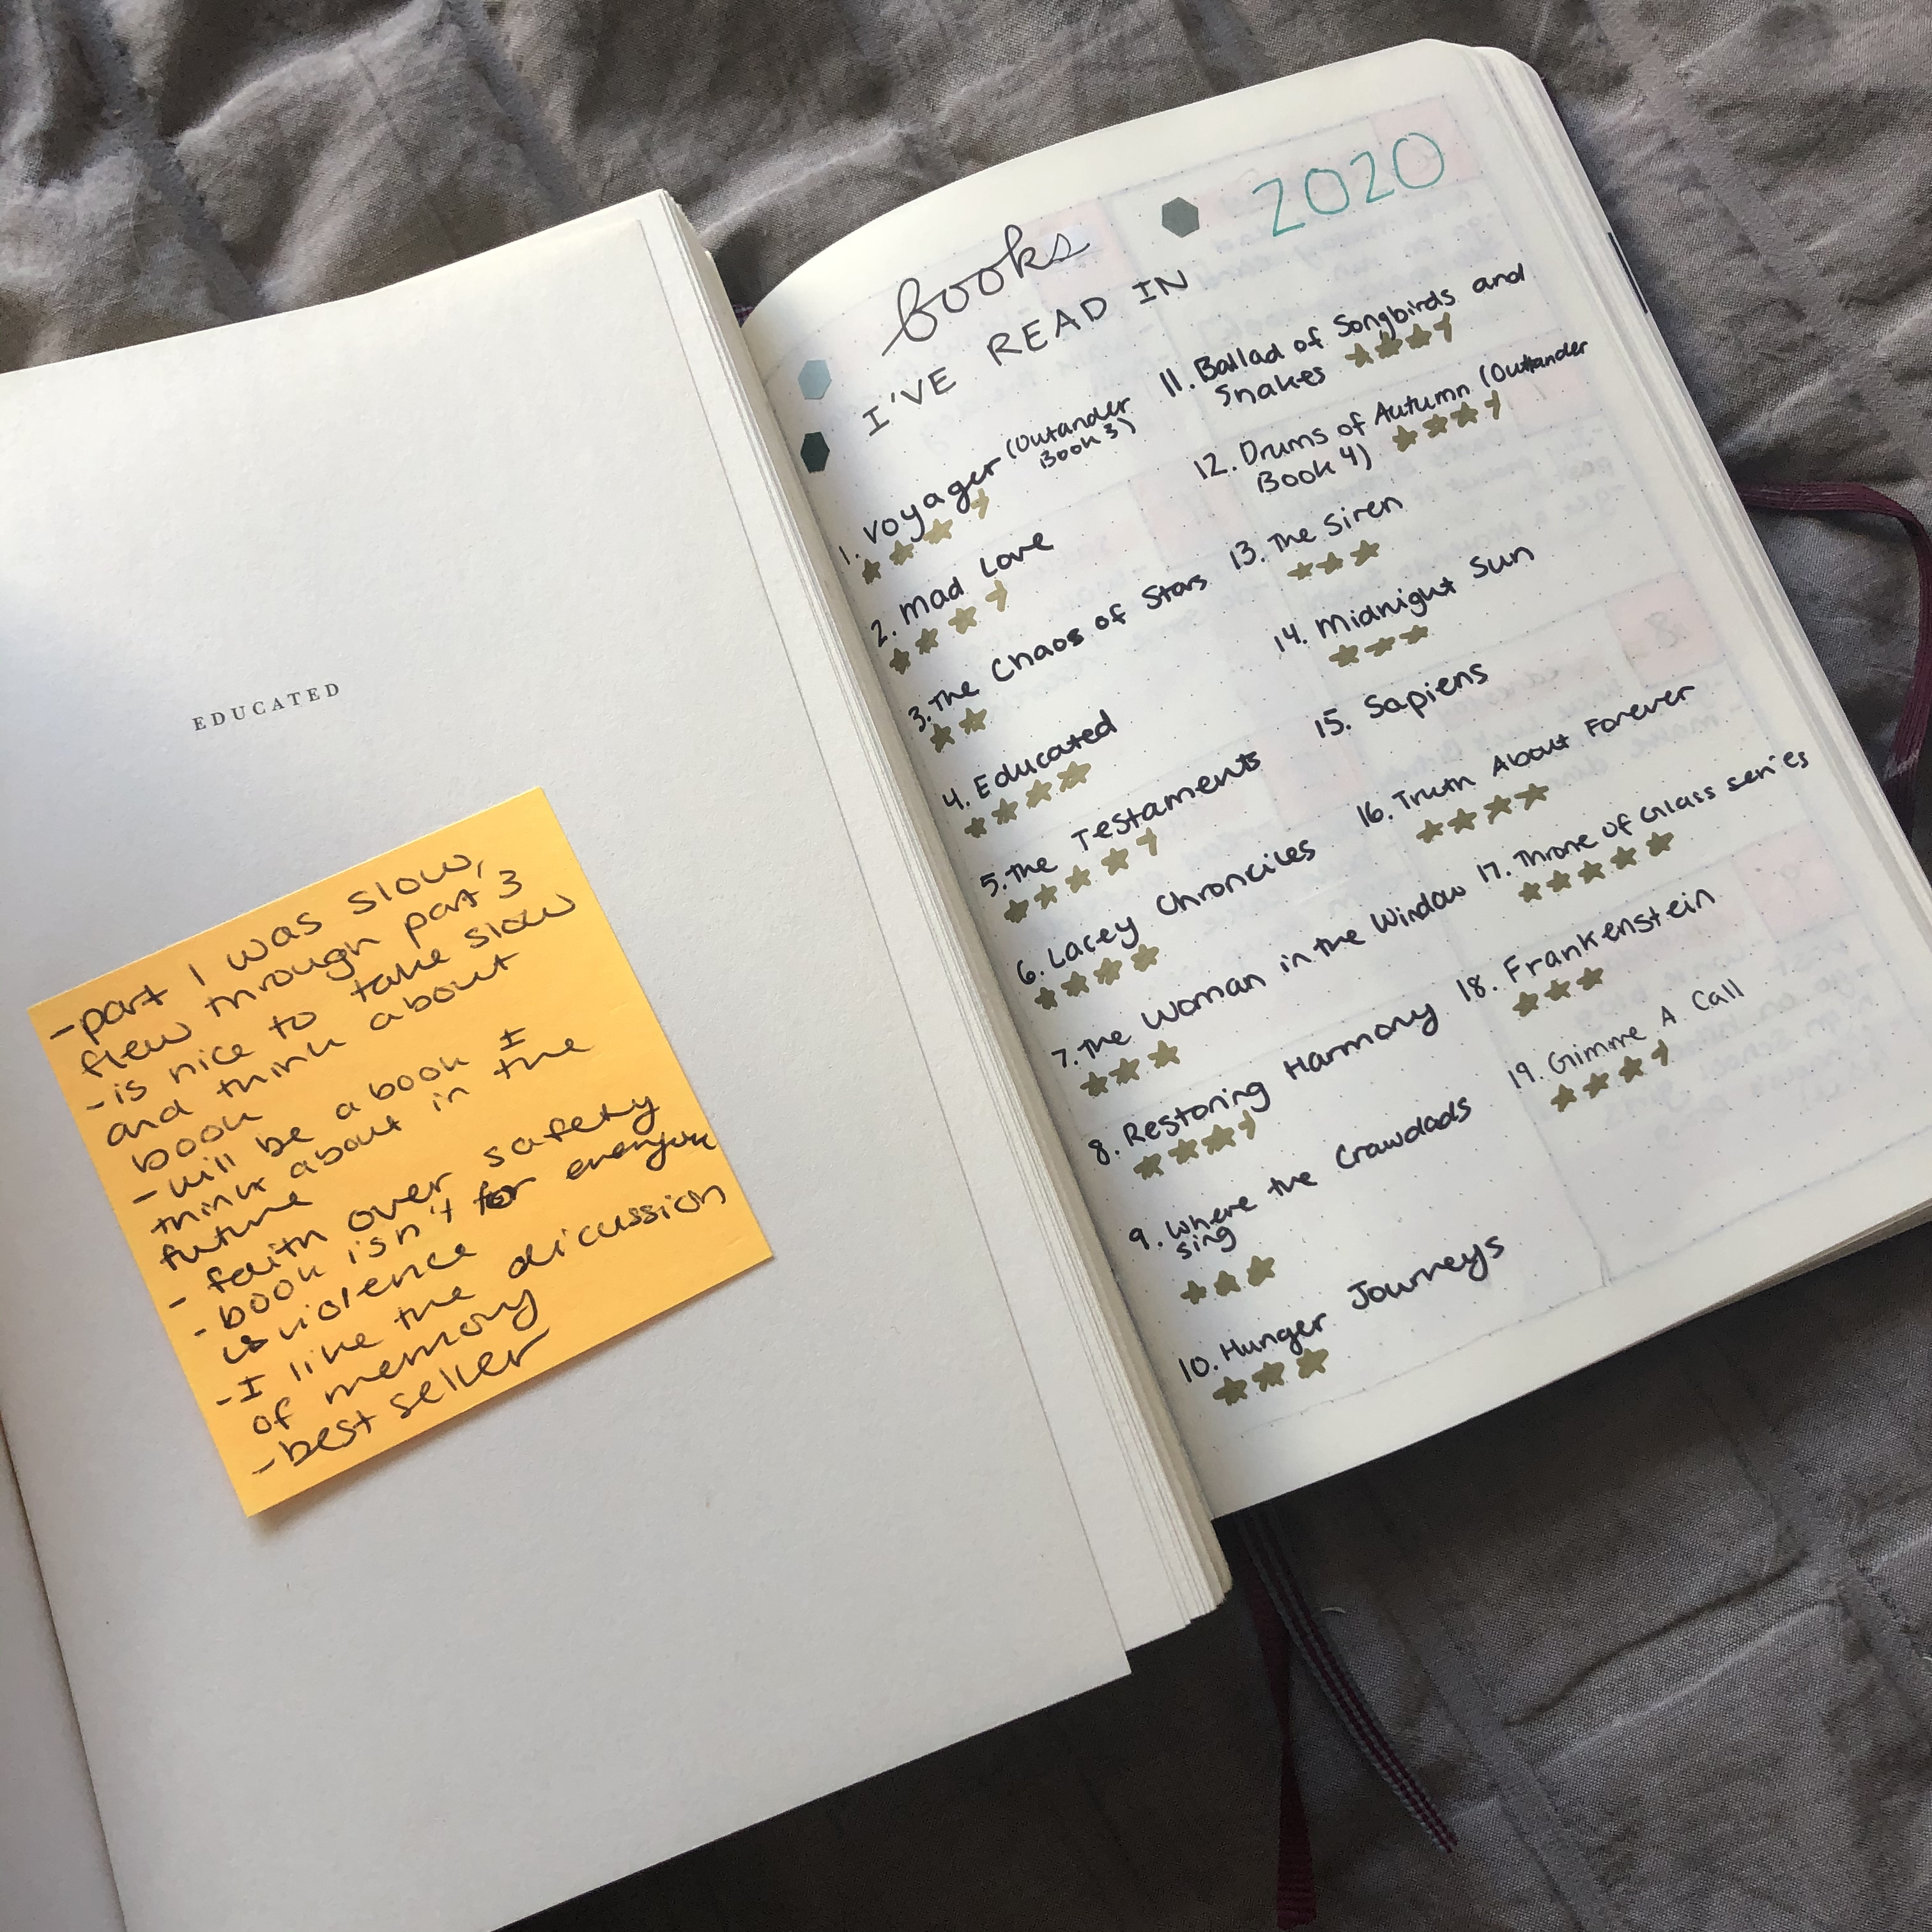 EDUCATED
-part 1 was slow,
flew through part 3
-is nice to take slow
and think about
book
-will be a book I
think about in the
future
- faith over safety
-book isn't for everyone
violence
-I like the dicussion
of memory
-best seller
books
I'VE READ IN
2020
1. Voyager (Outander
Book 3)
2. Mad Love
3. The Chaos of Stars
4. Educated
5. The Testaments
6. Lacey Chronciles
7. The Woman in the Window
8. Restoring Harmony
9. Where the Crawdads
sing
10. Hunger Journeys
11. Ballad of Songbirds and
Snakes
12. Drums of Autumn (Outlander
Book 4)
13. The Siren
14. Midnight Sun
15. Sapiens
16. Truth About Forever
17. Throne of Glass series
18. Frankenstein
19. Gimme A Call